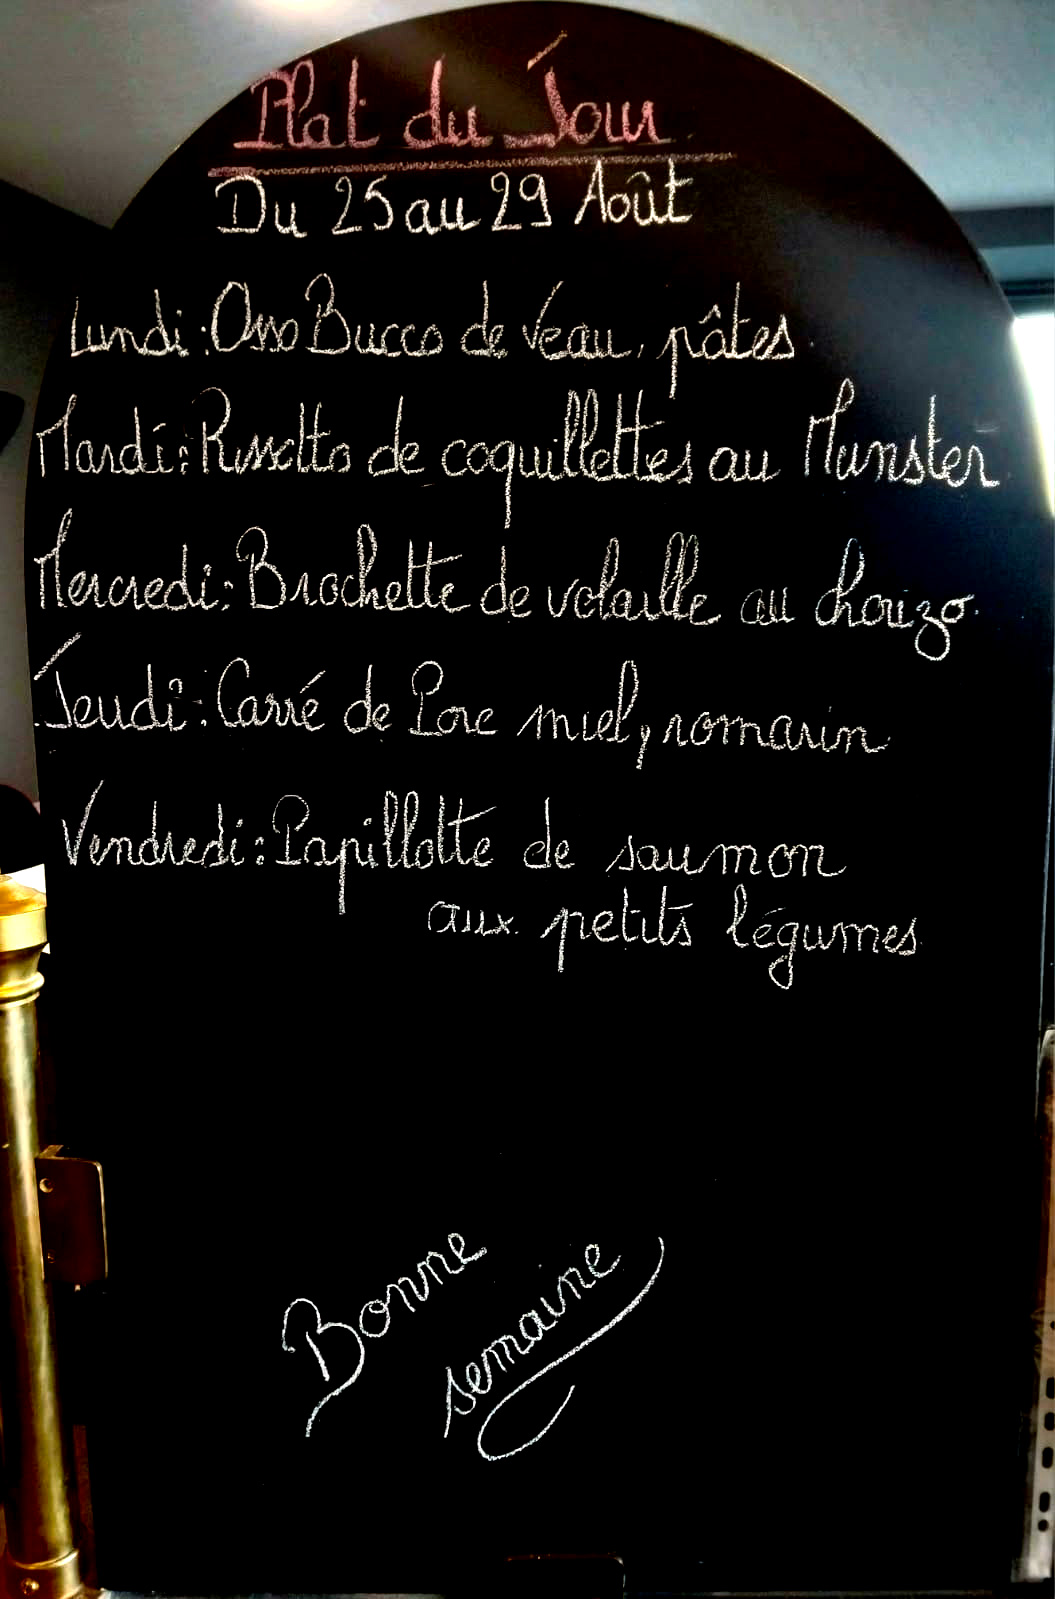 Plat du Jour
Du 25 au 29 Août
Lundi : Osso Bucco de Veau, pâtes
Mardi : Rissotto de coquillettes au Munster
Mercredi : Brochette de volaille au chorizo.
Jeudi : Carré de Porc miel, romarin
Vendredi : Papillotte de saumon
aux petits légumes
Bonne
semaine